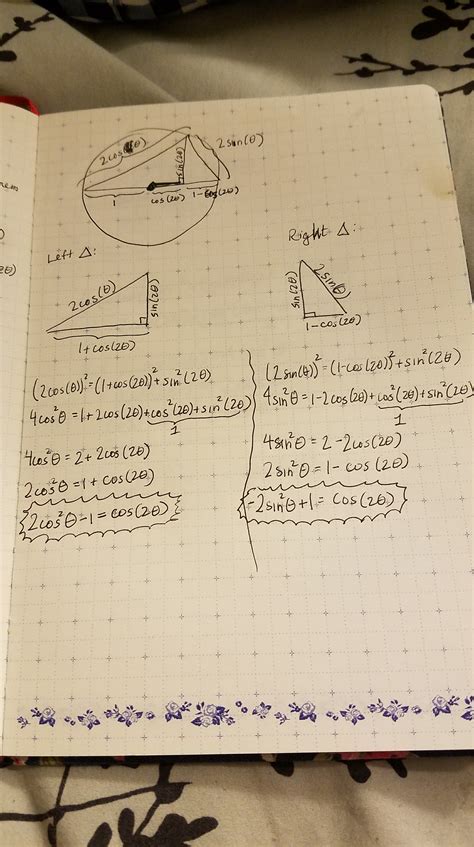 2cos(θ)
2sin(θ)
sin(2θ)
1
cos(2θ)
1-cos(2θ)
Left Δ:
2cos(θ)
sin(2θ)
1+cos(2θ)
(2cos(θ))²=(1+cos(2θ))²+sin²(2θ)
4cos²θ=1+2cos(2θ)+cos²(2θ)+sin²(2θ)
1
4cos²θ=2+2cos(2θ)
2cos²θ=1+cos(2θ)
2cos²θ-1=cos(2θ)
Right Δ:
sin(2θ)
2sin(θ)
1-cos(2θ)
(2sin(θ))²=(1-cos(2θ))²+sin²(2θ)
4sin²θ=1-2cos(2θ)+cos²(2θ)+sin²(2θ)
1
4sin²θ=2-2cos(2θ)
2sin²θ=1-cos(2θ)
-2sin²θ+1=cos(2θ)